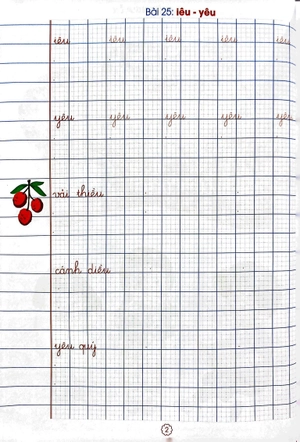 Bài 25: iêu - yêu
iêu iêu iêu iêu iêu
yêu yêu yêu yêu yêu
vải thiều
cánh diều
yêu quý
2